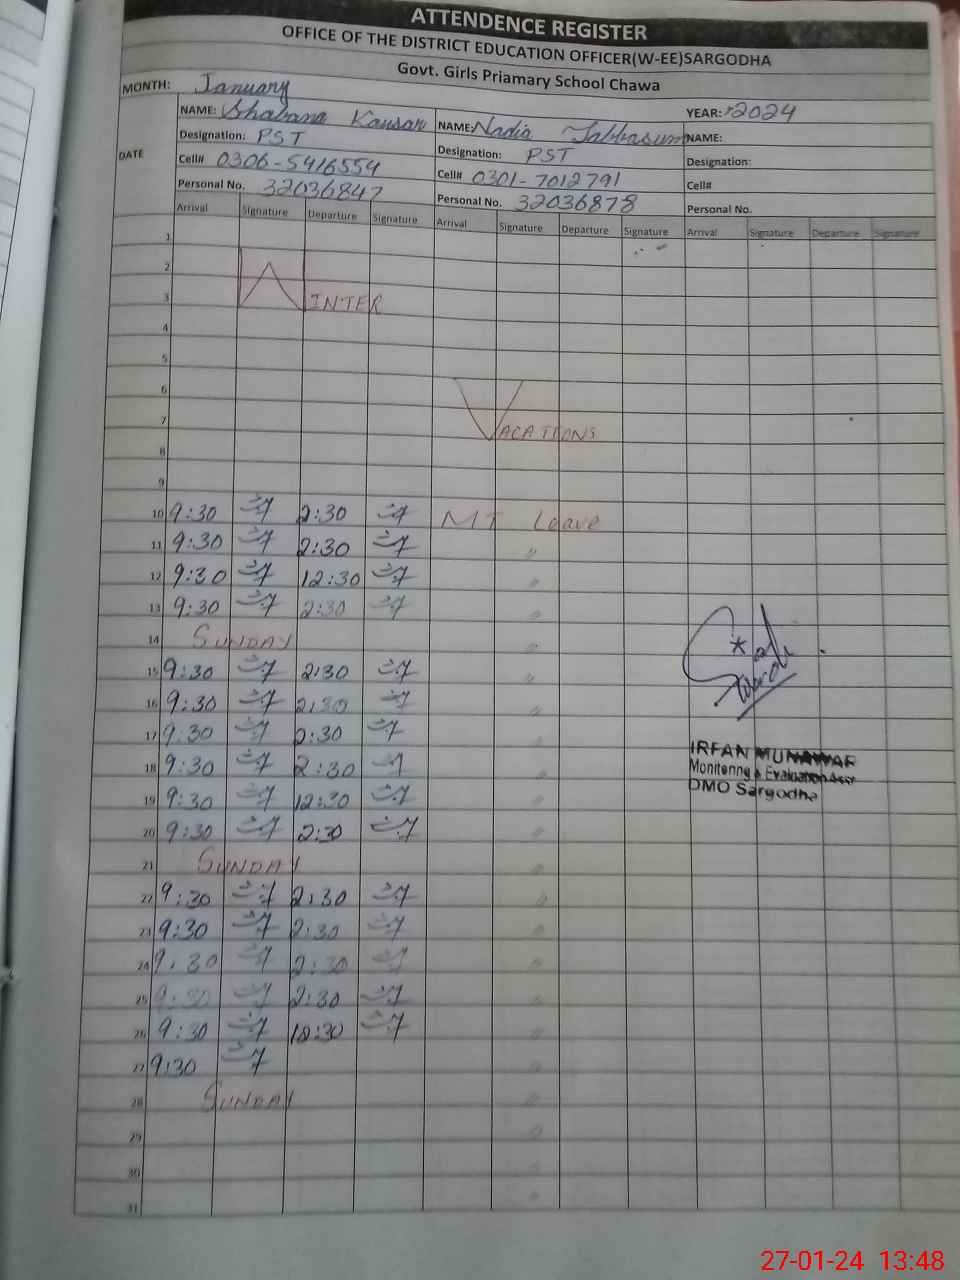 ATTENDENCE REGISTER
OFFICE OF THE DISTRICT EDUCATION OFFICER(W-EE)SARGODHA
Govt. Girls Priamary School Chawa
MONTH: January YEAR: 2024
NAME: Shabana Kausar NAME: Nadia Tabbasum NAME:
Designation: PST Designation: PST Designation:
DATE
Cell# 0306-5416554 Cell# 0301-7012791 Cell#
Personal No. 32036847 Personal No. 32036878 Personal No.
Arrival Signature Departure Signature Arrival Signature Departure Signature Arrival Signature Departure Signature
1
2
3 WINTER
4
5
6
7 VACATIONS
8
9
10 9:30 2:30 MT Leave
11 9:30 2:30 "
12 9:30 12:30 "
13 9:30 2:30 "
14 SUNDAY "
15 9:30 2:30 "
16 9:30 2:30 "
17 9:30 2:30 "
18 9:30 2:30 "
19 9:30 12:30 "
20 9:30 2:30 "
21 SUNDAY "
22 9:30 2:30 "
23 9:30 2:30 "
24 9:30 2:30 "
25 9:30 2:30 "
26 9:30 12:30 "
27 9:30 "
28 SUNDAY "
29 "
30 "
31 "
IRFAN MUNAWAR
Monitering & Evaluation Asst
DMO Sargodha
27-01-24 13:48